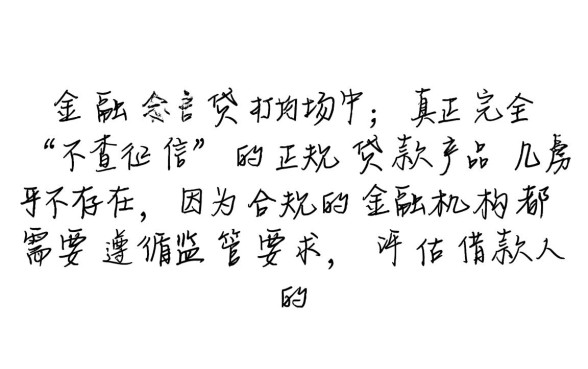 金融念言贷打均场中；真正完全
“不查征信”的正规贷款产品几虏
乎不存在，因为合规的金融机构都
需要遵循监管要求，评估借款人
的